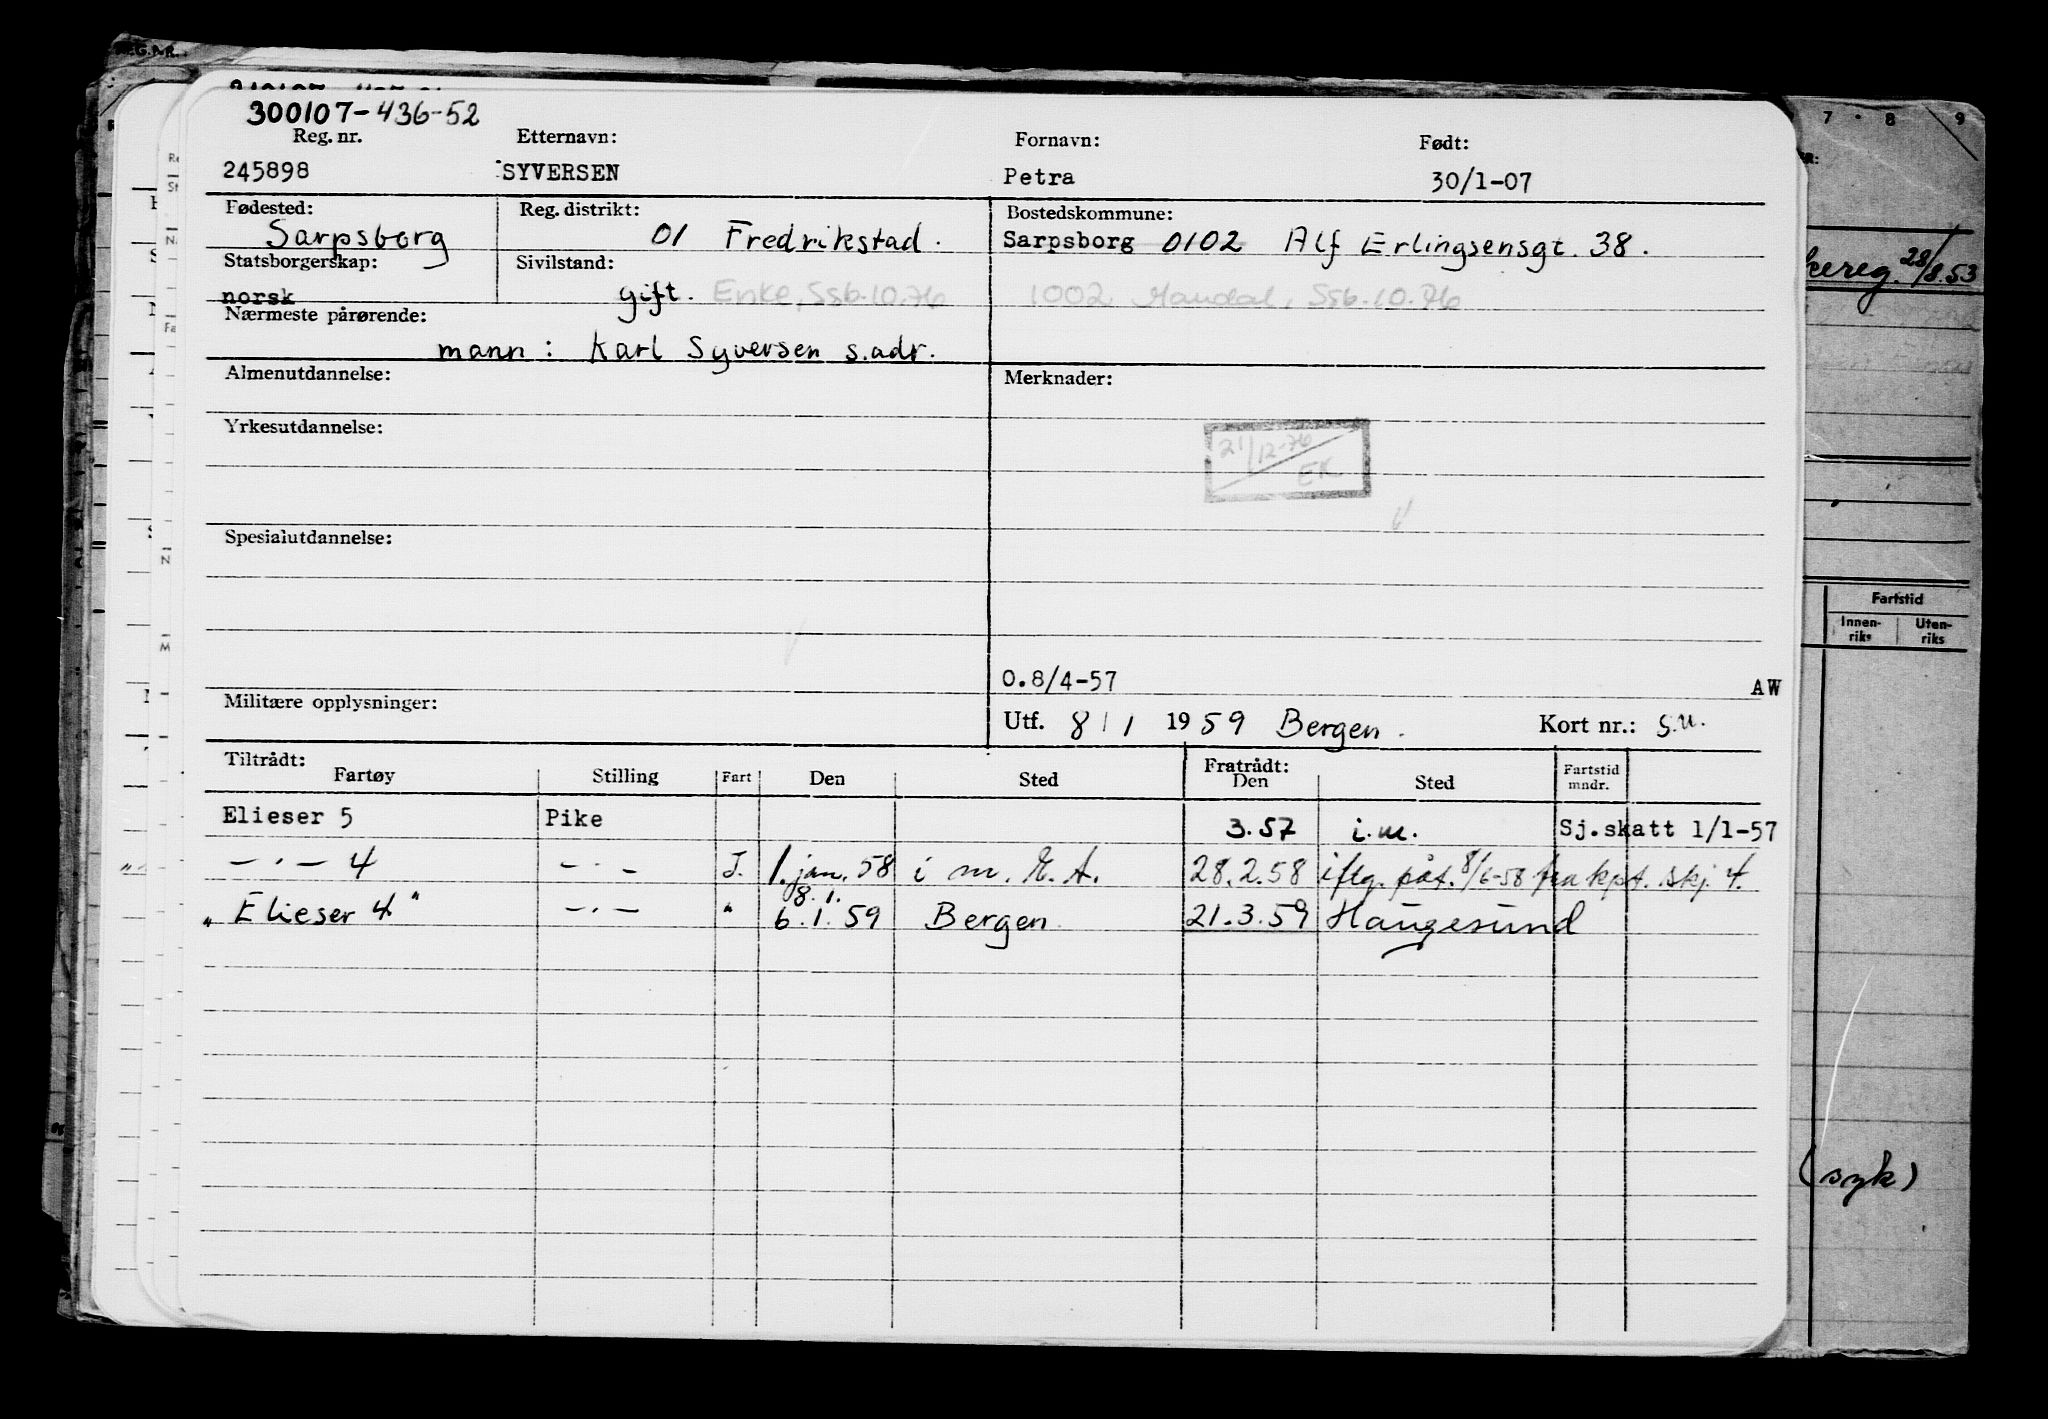 300107-436-52
Reg. nr. Etternavn: Fornavn: Født:
245898 SYVERSEN Petra 30/1-07
Fødested: Reg. distrikt: Bostedskommune:
Sarpsborg 01 Fredrikstad. Sarpsborg 0102 Alf Erlingsensgt. 38.
Statsborgerskap: Sivilstand:
norsk gift. Enke, Ssb.10.76 1002 Mandal, Ssb.10.76
Nærmeste pårørende:
mann: Karl Syversen s.adr.
Almenutdannelse: Merknader:
Yrkesutdannelse:
21/12-76
EK
Spesialutdannelse:
0.8/4-57 AW
Militære opplysninger:
Utf. 8/1 1959 Bergen. Kort nr.: s.u.
Tiltrådt: Fratrådt:
Fartøy Stilling Fart Den Sted Den Sted Fartstid mndr.
Elieser 5 Pike 3.57 i.m. Sj.skatt 1/1-57
— " — 4 — " — J. 1. jan. 58 i m. E. A. 28.2.58 iflg. påt. 8/6-58 fra kpt. skj. 4.
8.1.
"Elieser 4" — " — " 6.1.59 Bergen 21.3.59 Haugesund
REG.NR.
7 8 9
28/8.53
Fartstid
Innen-riks Uten-riks
(syk)